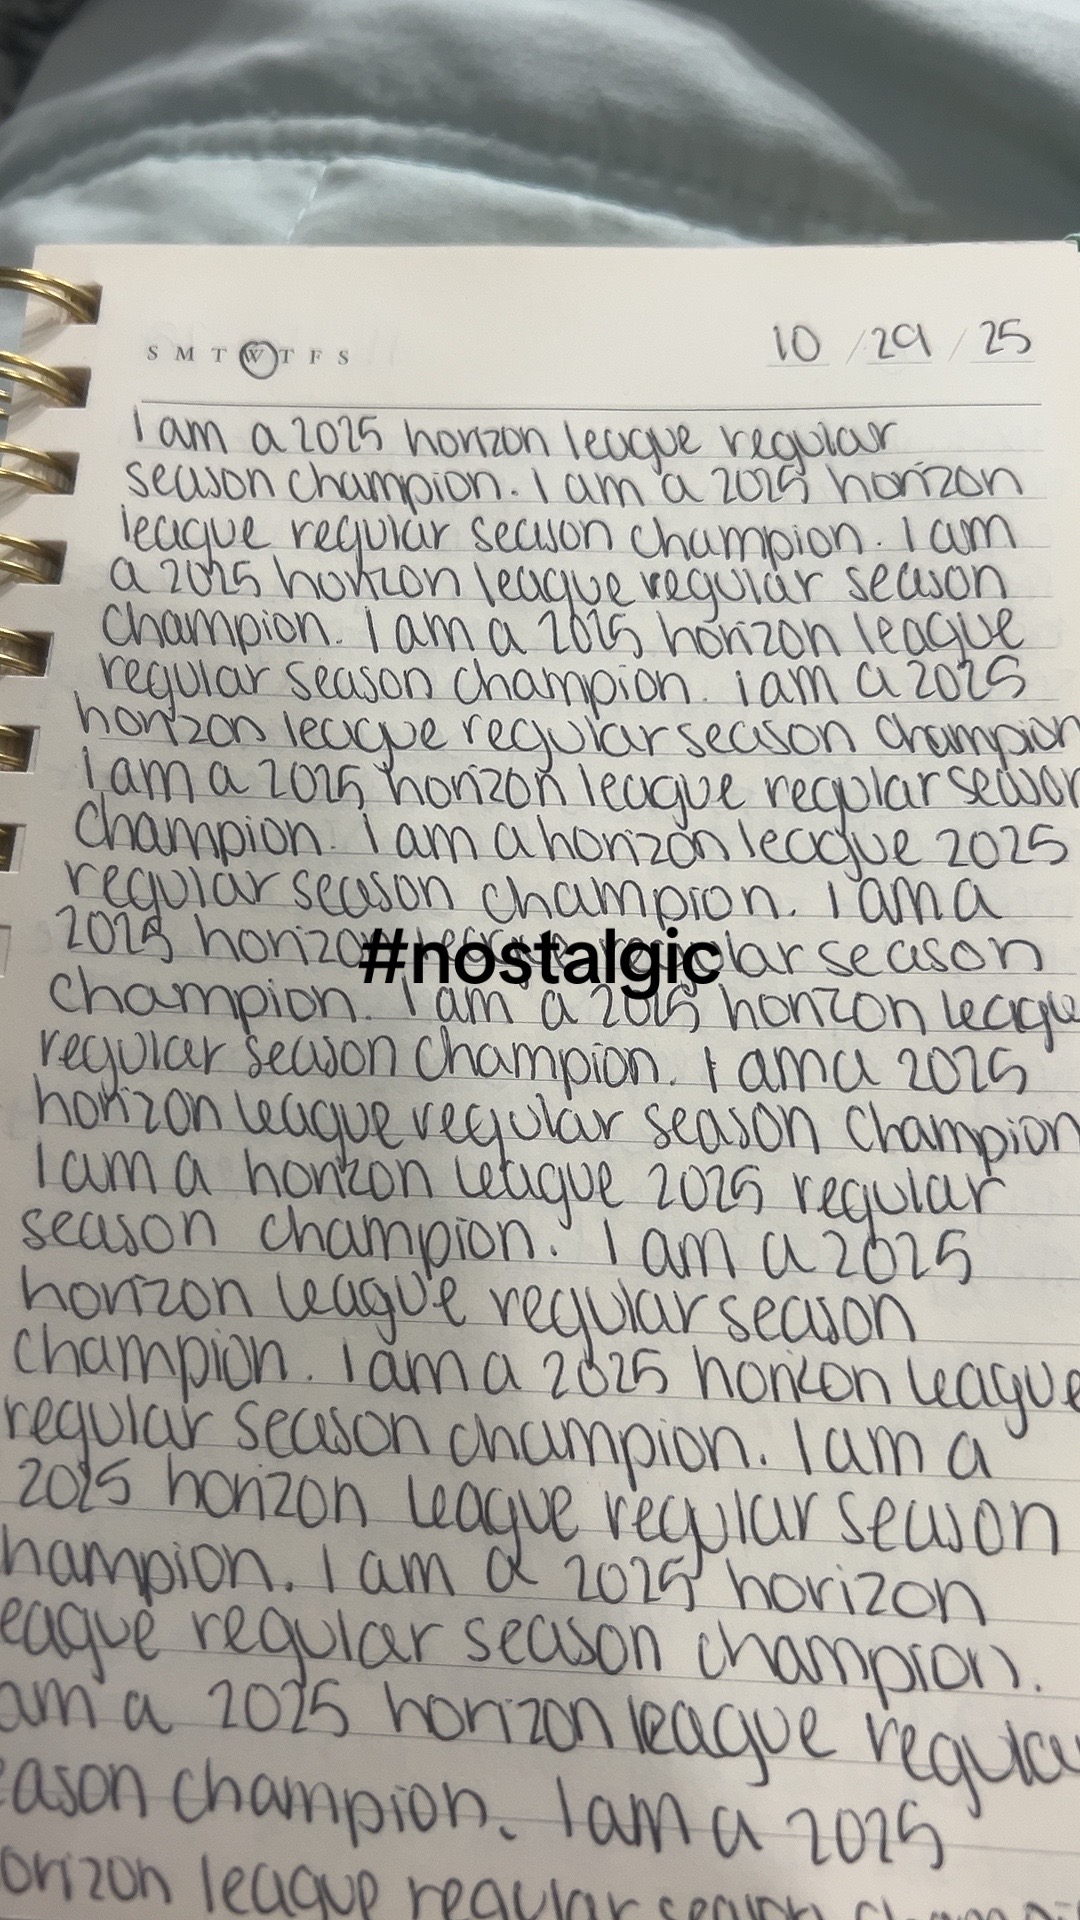 S M T W T F S
10 / 29 / 25
I am a 2025 horizon league regular
season champion. I am a 2025 horizon
league regular season champion. I am
a 2025 horizon league regular season
champion. I am a 2025 horizon league
regular season champion. i am a 2025
horizon league regular season champion
I am a 2025 horizon league regular season
champion. I am a horizon league 2025
regular season champion. I am a
2025 horizon league regular season
#nostalgic
champion. I am a 2025 horizon league
regular season champion. I am a 2025
horizon league regular season champion
I am a horizon league 2025 regular
season champion. I am a 2025
horizon league regular season
champion. I am a 2025 horizon league
regular season champion. I am a
2025 horizon league regular season
hampion. I am a 2025 horizon
eague regular season champion.
am a 2025 horizon league regula
eason champion. I am a 2025
orizon league regular season champi